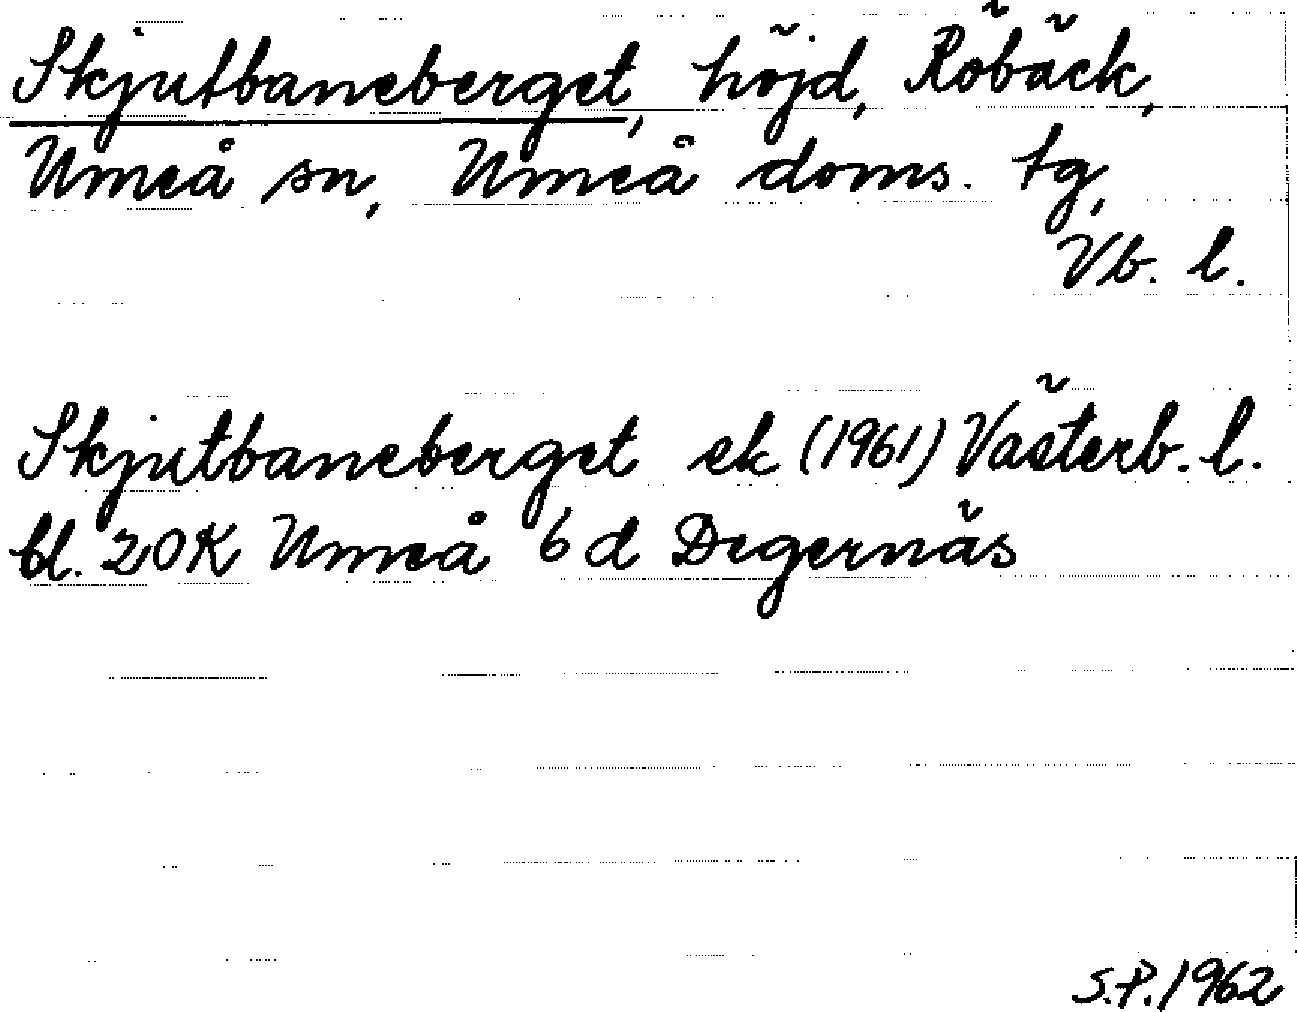 Skjutbaneberget, höjd, Röbäck,
Umeå sn, Umeå doms. tg,
Vb. l.
Skjutbaneberget ek (1961) Västerb. l.
bl. 20K Umeå 6d Degernäs
S.P. 1962